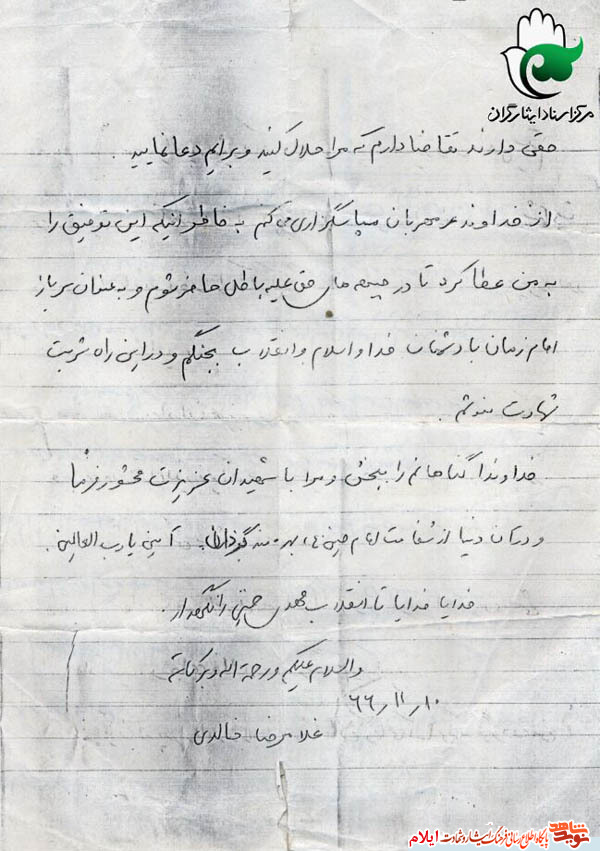 مرکز اسناد ایثارگران
حقی دارند تقاضا دارم که مرا حلال کنید و برایم دعا نمایید.
از خداوند مهربان سپاسگزاری می کنم به خاطر اینکه این توفیق را
به من عطا کرد تا در جبهه های حق علیه باطل حاضر شوم و به عنوان سرباز
امام زمان با دشمنان خدا و اسلام و انقلاب بجنگم و در این راه شربت
شهادت بنوشم.
خداوندا گناهانم را ببخش و مرا با شهیدان عزیزت محشور فرما
و در آن دنیا از شفاعت امام حسین (ع) بهره مند گردان. آمین یا رب العالمین.
خدایا خدایا تا انقلاب مهدی خمینی را نگهدار.
والسلام علیکم و رحمة الله و برکاته
۱۰ر۱۱ر۶۶
غلامرضا خالدی
نوید شاهد پایگاه اطلاع رسانی فرهنگ ایثار و شهادت ایلام